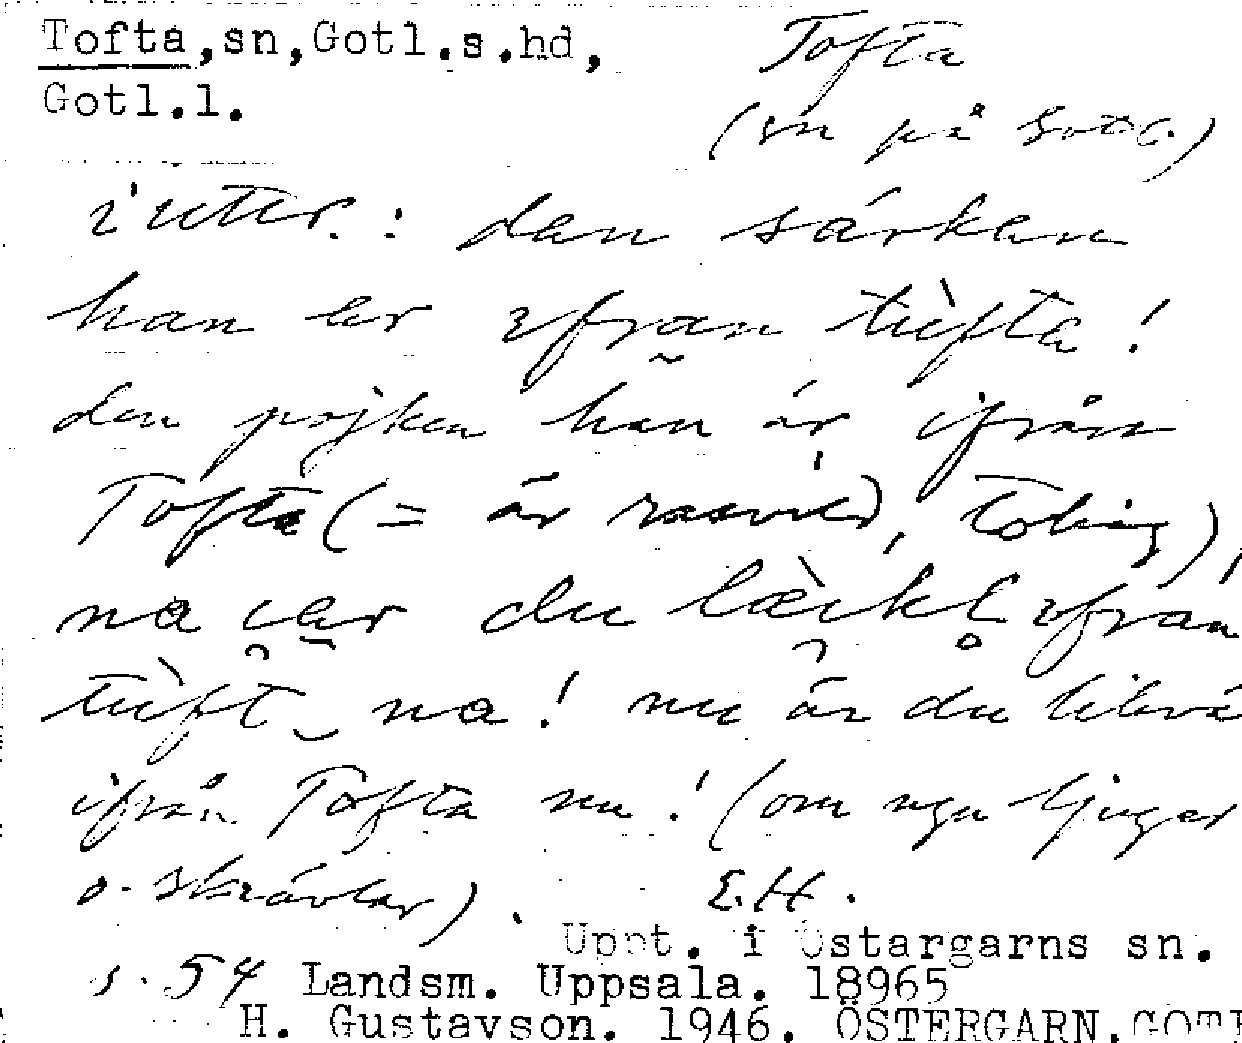 Tofta,sn,Gotl.s.hd,
Gotl.l.
Tofta
(sn på Gotl.)
i uttr.: den särken
han er ifran tùfta!
den pojken han är ifrån
Tofta (= är , tokig),
na du ifran
tùft na! nu är du likvä
ifrån Tofta nu! (om ngn ljuger
o. skrävlar). E.H.
Uppt. i Östargarns sn.
s. 54 Landsm. Uppsala. 18965
H. Gustavson. 1946. ÖSTERGARN.GOTL